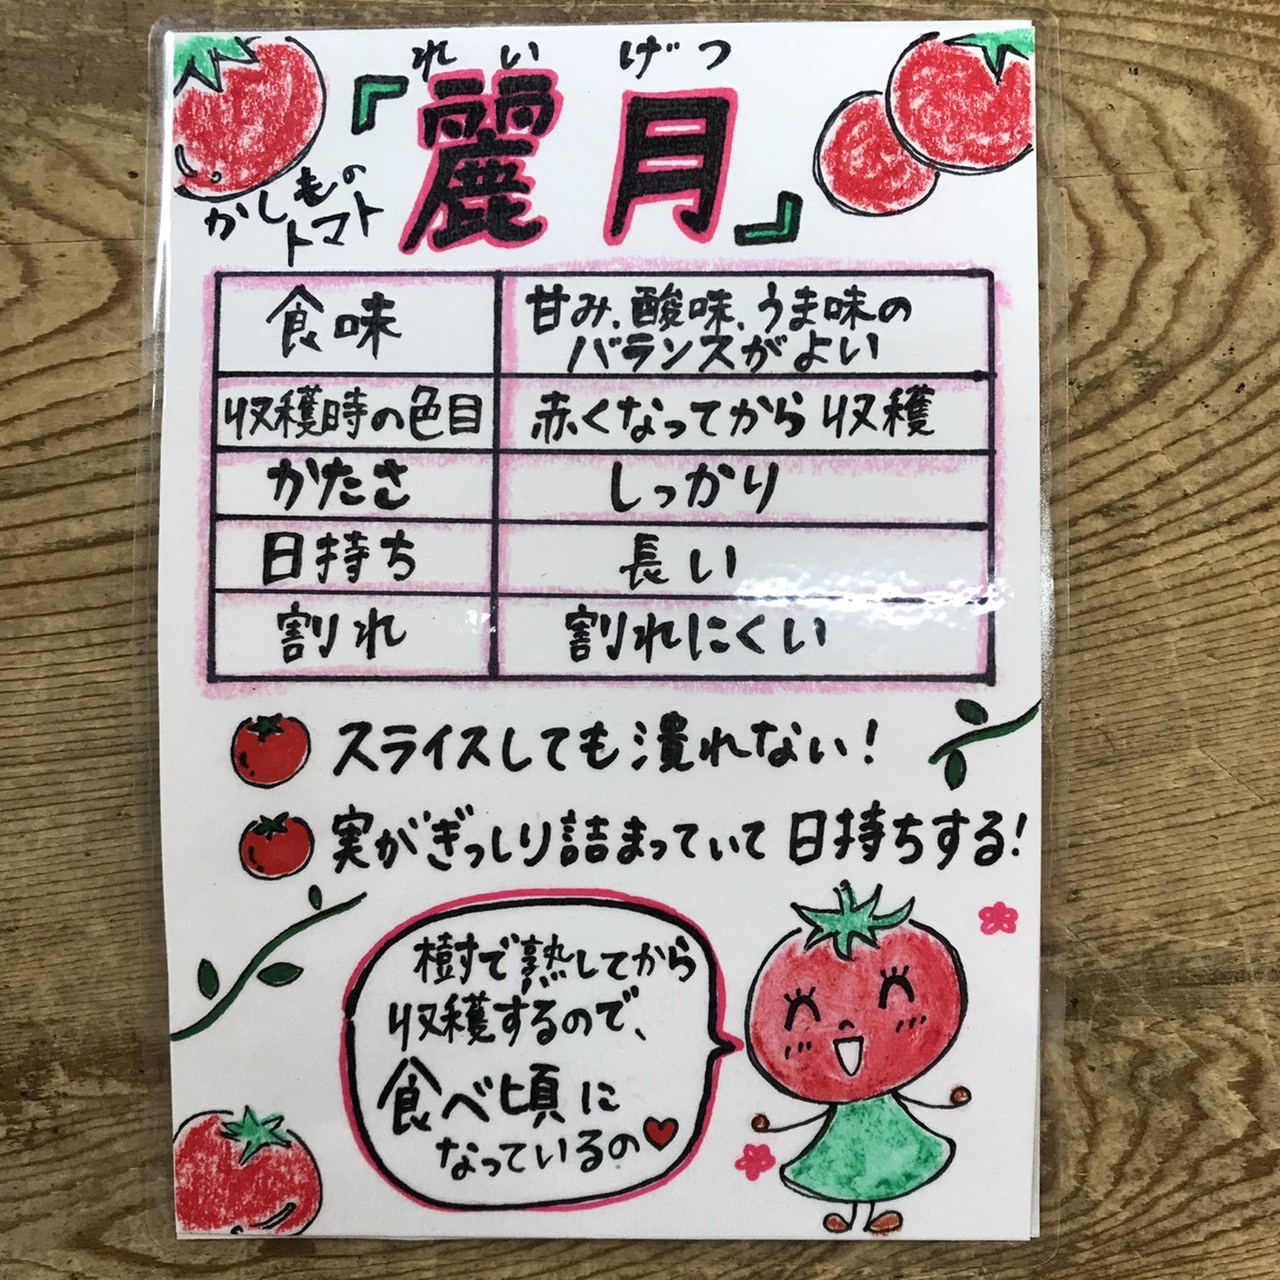 れいげつ
『麗月』
かしもの
トマト
食味
甘み、酸味、うま味の
バランスがよい
収穫時の色目
赤くなってから収穫
かたさ
しっかり
日持ち
長い
割れ
割れにくい
スライスしても潰れない!
実がぎっしり詰まっていて日持ちする!
樹で熟してから
収穫するので、
食べ頃に
なっているの♥